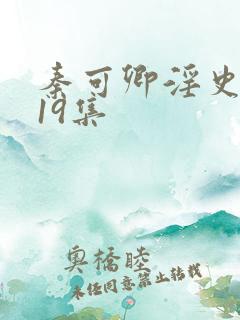 秦可卿淫史
19集
奥橋睦
未经同意禁止转载